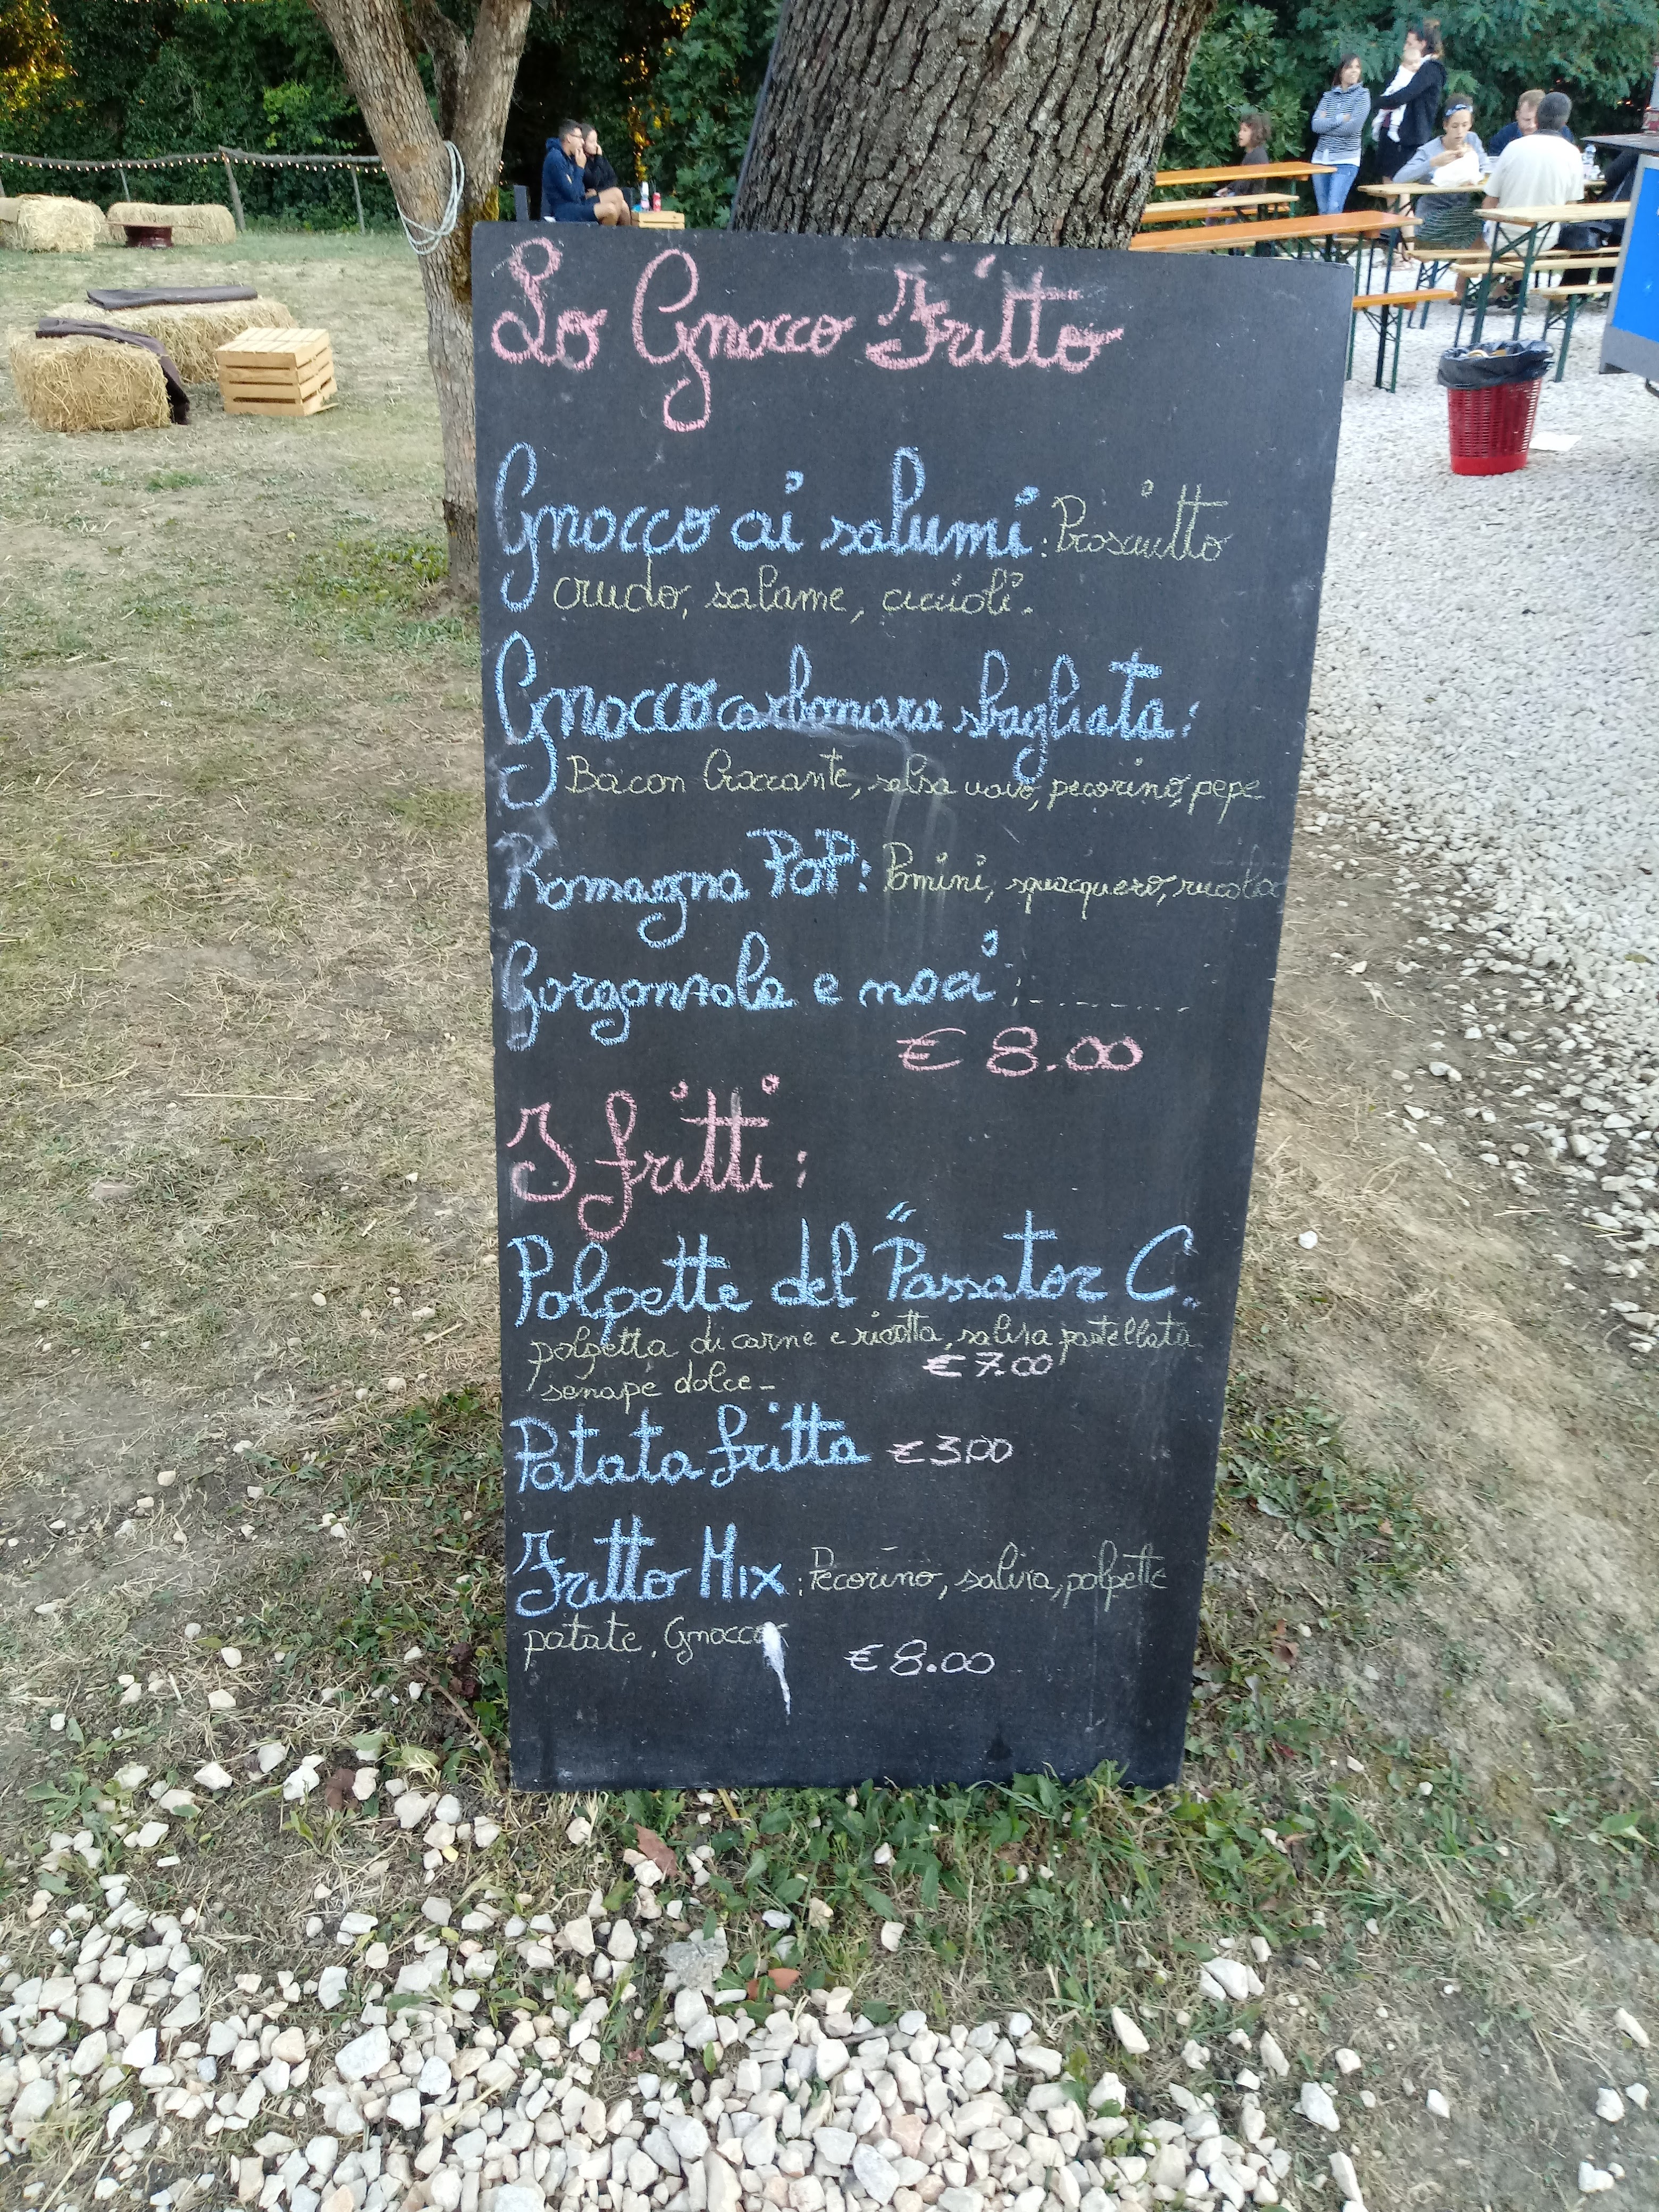 Lo Gnocco Fritto
Gnocco ai salumi: Prosciutto
crudo, salame, ciccioli.
Gnocco carbonara sbagliata:
Bacon Croccante, salsa uovo, pecorino, pepe
Romagna POP: Pomini, squacquero, rucola
Gorgonzola e noci: -------
€ 8.00
I fritti:
Polpette del "Passator C."
polpetta di carne e ricotta, salvia pastellata
senape dolce - € 7.00
Patata fritta € 3.00
Fritto MIX: Pecorino, salvia, polpette
patate, Gnocco € 8.00